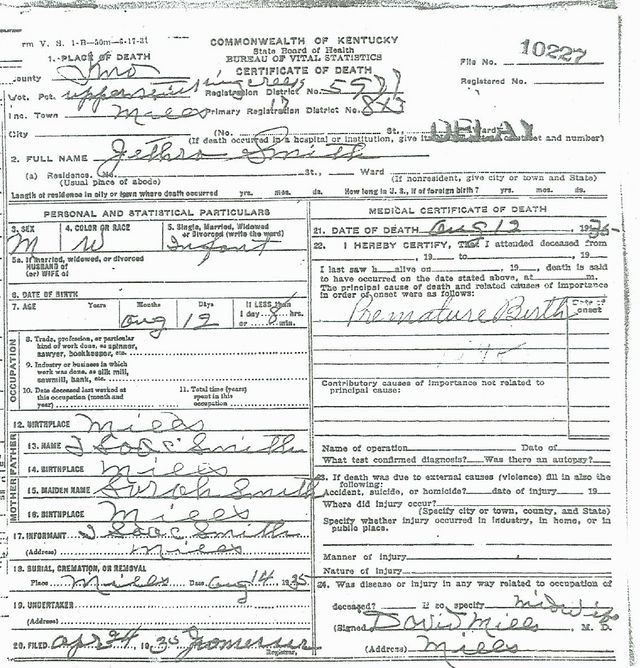 rm V. S. 1-B—50m—6-17-31
COMMONWEALTH OF KENTUCKY
State Board of Health
BUREAU OF VITAL STATISTICS
CERTIFICATE OF DEATH
File No. 10227
Registered No.
1. PLACE OF DEATH
County
Vot. Pct. Registration District No.
Inc. Town Mills Primary Registration District No.
City (No. St., Ward)
(If death occurred in a hospital or institution, give its street and number)
DELAY
2. FULL NAME Jethro Smith
(a) Residence. No. St., Ward
(Usual place of abode) (If nonresident, give city or town and State)
Length of residence in city or town where death occurred yrs. mos. ds. How long in U. S., if of foreign birth? yrs. mos. ds.
PERSONAL AND STATISTICAL PARTICULARS
3. SEX M
4. COLOR OR RACE W
5. Single, Married, Widowed or Divorced (write the word) Infant
5a. If married, widowed, or divorced
HUSBAND of
(or) WIFE of
6. DATE OF BIRTH
7. AGE Years Months Days If LESS than
Aug 12 1 day 8 hrs.
or min.
OCCUPATION
8. Trade, profession, or particular
kind of work done, as spinner,
sawyer, bookkeeper, etc.
9. Industry or business in which
work was done, as silk mill,
sawmill, bank, etc.
10. Date deceased last worked at
this occupation (month and
year)
11. Total time (years)
spent in this
occupation
12. BIRTHPLACE Mills
FATHER
13. NAME Isaac Smith
14. BIRTHPLACE Mills
MOTHER
15. MAIDEN NAME Sarah Smith
16. BIRTHPLACE Mills
17. INFORMANT Isaac Smith
(Address) Mills
18. BURIAL, CREMATION, OR REMOVAL
Place Mills Date Aug 14 1935
19. UNDERTAKER
(Address)
20. FILED Registrar.
MEDICAL CERTIFICATE OF DEATH
21. DATE OF DEATH Aug 12 1935
22. I HEREBY CERTIFY, That I attended deceased from
, 19 to , 19
I last saw h alive on , 19 , death is said
to have occurred on the date stated above, at m.
The principal cause of death and related causes of importance
in order of onset were as follows:
Date of onset
Premature Birth
Contributory causes of importance not related to
principal cause:
Name of operation Date of
What test confirmed diagnosis? Was there an autopsy?
23. If death was due to external causes (violence) fill in also the
following:
Accident, suicide, or homicide? date of injury 19
Where did injury occur?
(Specify city or town, county, and State)
Specify whether injury occurred in industry, in home, or in
public place.
Manner of injury
Nature of injury
24. Was disease or injury in any way related to occupation of
deceased? If so specify midwife
(Signed) David Mills M. D.
(Address) Mills